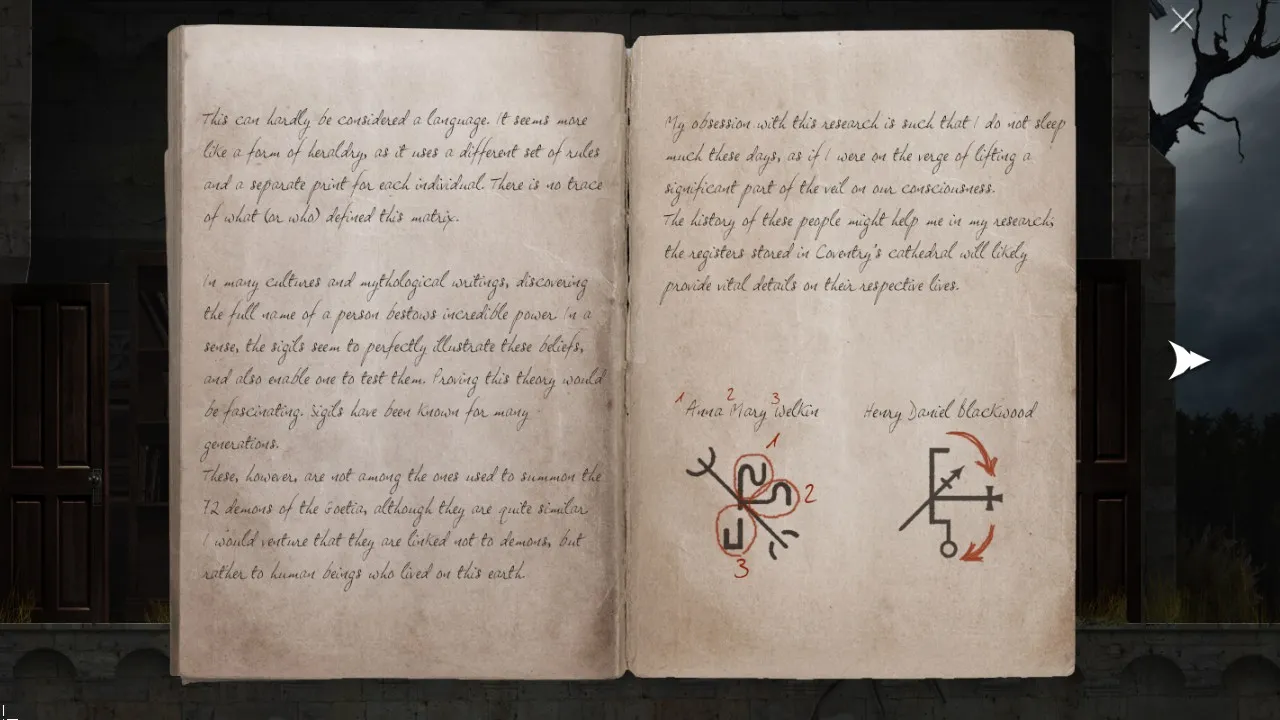 This can hardly be considered a language. It seems more
like a form of heraldry, as it uses a different set of rules
and a separate print for each individual. There is no trace
of what (or who) defined this matrix.
In many cultures and mythological writings, discovering
the full name of a person bestows incredible power. In a
sense, the sigils seem to perfectly illustrate these beliefs,
and also enable one to test them. Proving this theory would
be fascinating. Sigils have been known for many
generations.
These, however, are not among the ones used to summon the
72 demons of the Goetia, although they are quite similar.
I would venture that they are linked not to demons, but
rather to human beings who lived on this earth.
My obsession with this research is such that I do not sleep
much these days, as if I were on the verge of lifting a
significant part of the veil on our consciousness.
The history of these people might help me in my research;
the registers stored in Coventry's cathedral will likely
provide vital details on their respective lives.
1 2 3
Anna Mary Welkin
1
2
3
Henry Daniel Blackwood